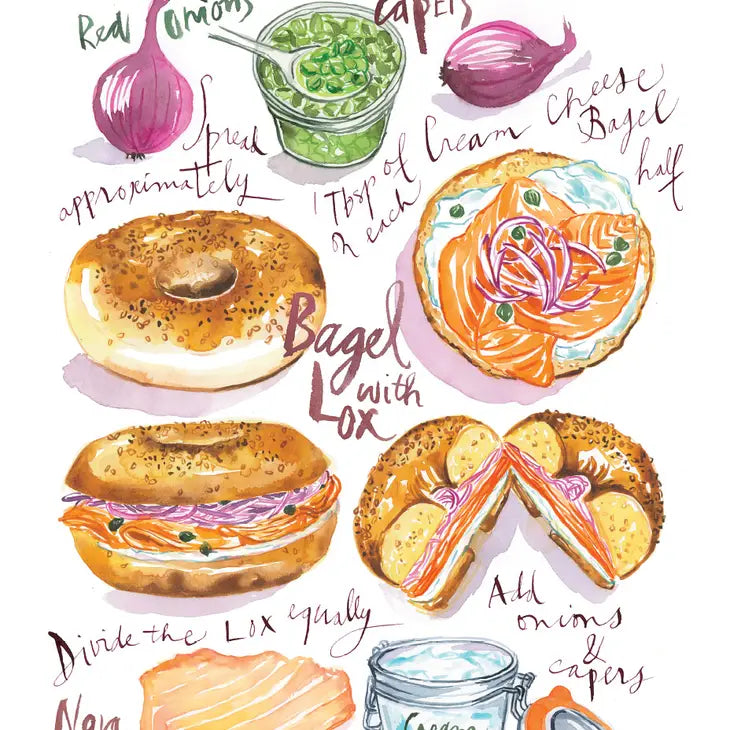 Red onions
Capers
Spread
approximately
1 Tbsp of Cream Cheese
on each Bagel
half
Bagel
with
Lox
Divide the Lox equally
Add
onions
&
capers
Nova
Cream